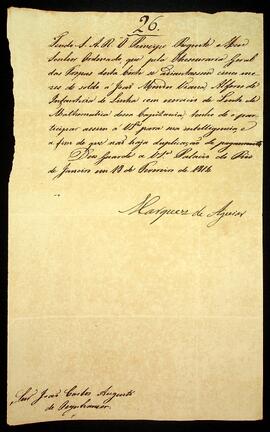 26.
Tendo S. A. R. O Principe Regente Meu
Senhor Ordenado que pela Thesouraria Geral
das Tropas desta Corte se adiantassem cinco me-
zes de soldo a João Mendes Alferes de
Infantaria de Linha com exercicio de Lente de
Mathematica dessa Capitania: tenho de o par-
ticipar assim a VS.ª para sua intelligencia e
a fim de que não haja duplicação de pagamento.
Deos Guarde a VS.ª Palacio do Rio
de Janeiro em de Fevereiro de 1816
Marquez de Aguiar
Snr. João Carlos Augusto
de Oeynhausen.